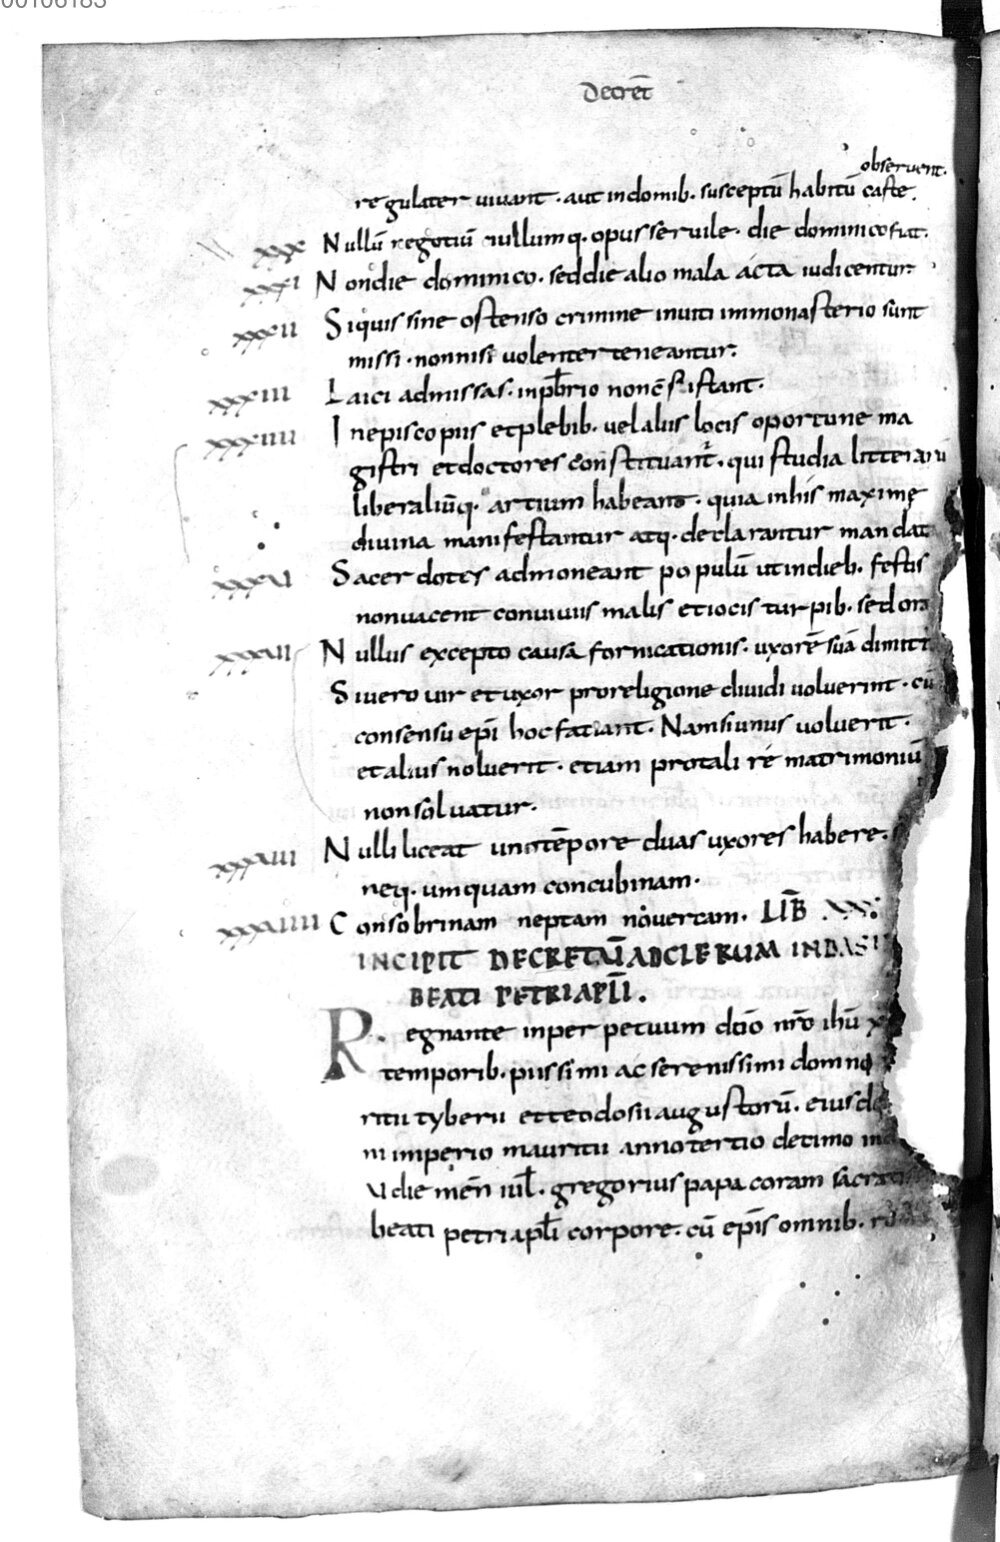 00106183
Decret̄
observent.
regulater vivant · aut indomib. susceptū habitū caste.
xxx Nullū negotiū nullumq. opus servile · die dominico fiat.
xxxi Non die dominico · sed die alio mala acta iudicentur.
xxxii Siquis sine ostenso crimine inviti immonasterio sunt
missi · non nisi volenter teneantur.
xxxiii Laici ad missas · in pƀrio non cōsistant.
xxxiiii In episcopiis et plebib. vel aliis locis oportune ma
gistri et doctores constituant̄ · qui studia litterarū
liberaliūq. artium habeant · quia in his maximę
divina manifestantur atq. declarantur mandat
xxxv Sacerdotes admoneant populū ut in dieb. festis
non vacent conviviis malis et iocis turpib. sed ora
xxxvii Nullus excepto causa fornicationis · uxorē suā dimitt
Si vero vir et uxor pro religione dividi voluerint · cū
consensu epī hoc faciant. Nam si unus voluerit ·
et alius noluerit · etiam pro tali re matrimoniū
non solvatur.
xxxviii Nulli liceat uno tēpore duas uxores habere.
neq. umquam concubinam.
xxxviiii Consobrinam neptam novercam. LIB̄ XXX:
INCIPIT DECRETAŪ AD CLERUM IN BASI
BEATI PETRI APLĪ.
Regnante in perpetuum dn̄o nr̄o ihū x
temporib. piissimi ac serenissimi domno
ritii tyberii et teodosii augustorū · eiusde
m imperio mauritii anno tertio decimo ind
V die mēn iul̄ · gregorius papa coram sacrati
beati petri apl̄i corpore · cū epīs omnib. ro